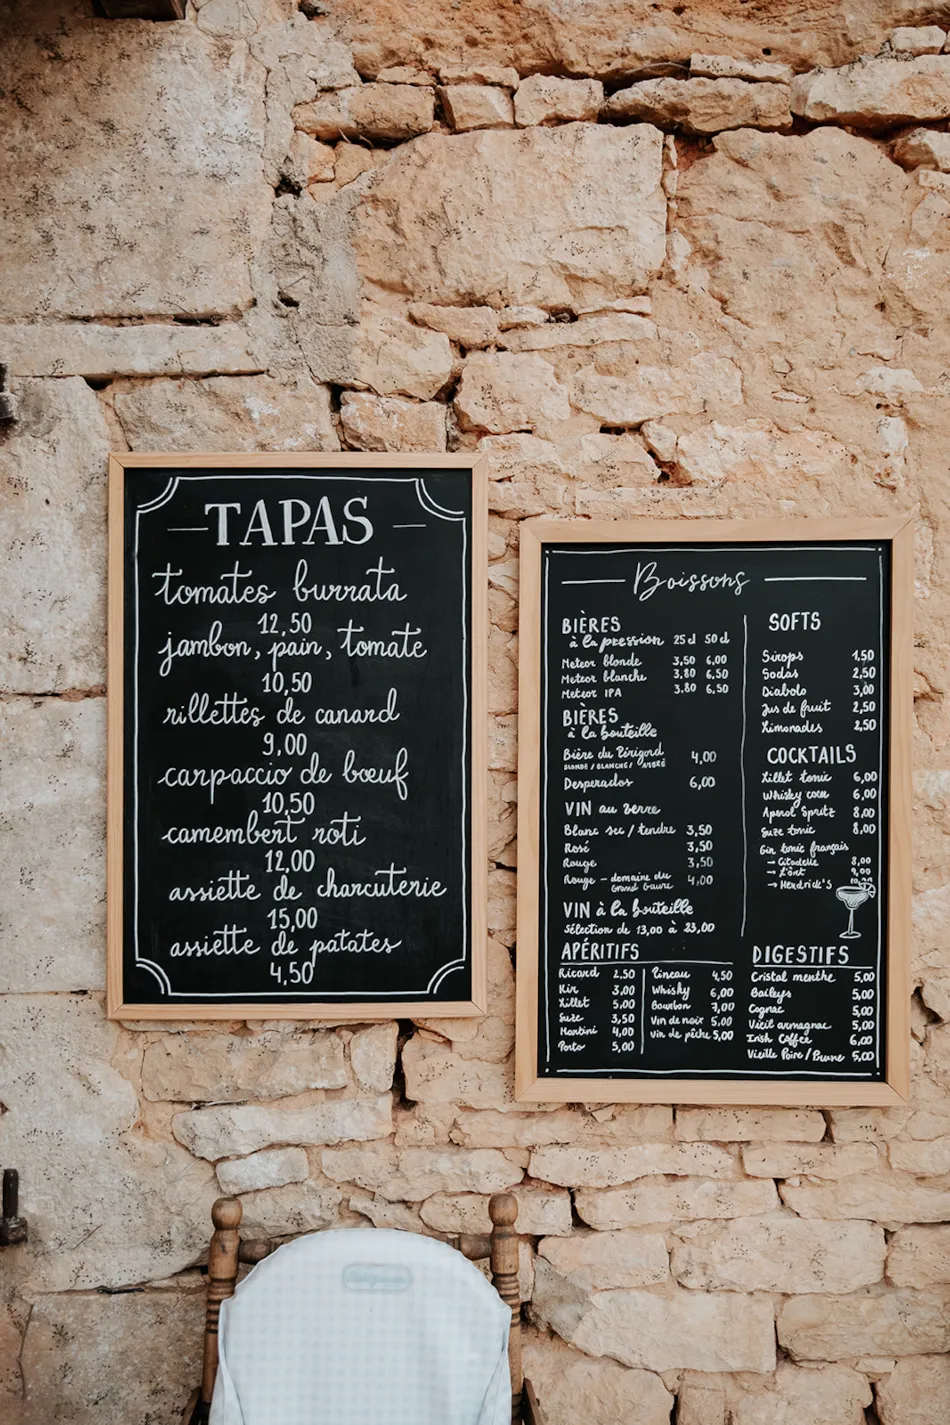 TAPAS
tomates burrata
12,50
jambon, pain, tomate
10,50
rillettes de canard
9,00
carpaccio de bœuf
10,50
camembert roti
12,00
assiette de charcuterie
15,00
assiette de patates
4,50
Boissons
BIÈRES
à la pression 25 cl 50 cl
Meteor blonde 3,50 6,00
Meteor blanche 3,80 6,50
Meteor IPA 3,80 6,50
BIÈRES
à la bouteille
Bière du Périgord 4,00
BLONDE / BLANCHE / AMBRÉ
Desperados 6,00
VIN au verre
Blanc sec / tendre 3,50
Rosé 3,50
Rouge 3,50
Rouge - domaine du 4,00
Grand Gaure
VIN à la bouteille
Sélection de 13,00 à 23,00
SOFTS
Sirops 1,50
Sodas 2,50
Diabolo 3,00
Jus de fruit 2,50
Limonades 2,50
COCKTAILS
Lillet tonic 6,00
Whisky coca 6,00
Aperol Spritz 8,00
Suze tonic 8,00
Gin tonic français
→ Citadelle 8,00
→ 9,00
→ Hendrick's
APÉRITIFS
Ricard 2,50
Kir 3,00
Lillet 5,00
Suze 3,50
Martini 4,00
Porto 5,00
Pineau 4,50
Whisky 6,00
Bourbon 7,00
Vin de noix 5,00
Vin de pêche 5,00
DIGESTIFS
Cristal menthe 5,00
Baileys 5,00
Cognac 5,00
Vieil armagnac 5,00
Irish Coffee 6,00
Vieille Poire / Prune 5,00